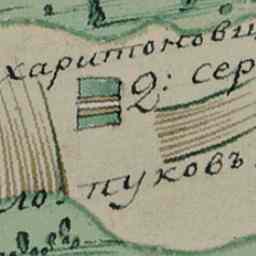 харитонови
2: сер
пуковъ